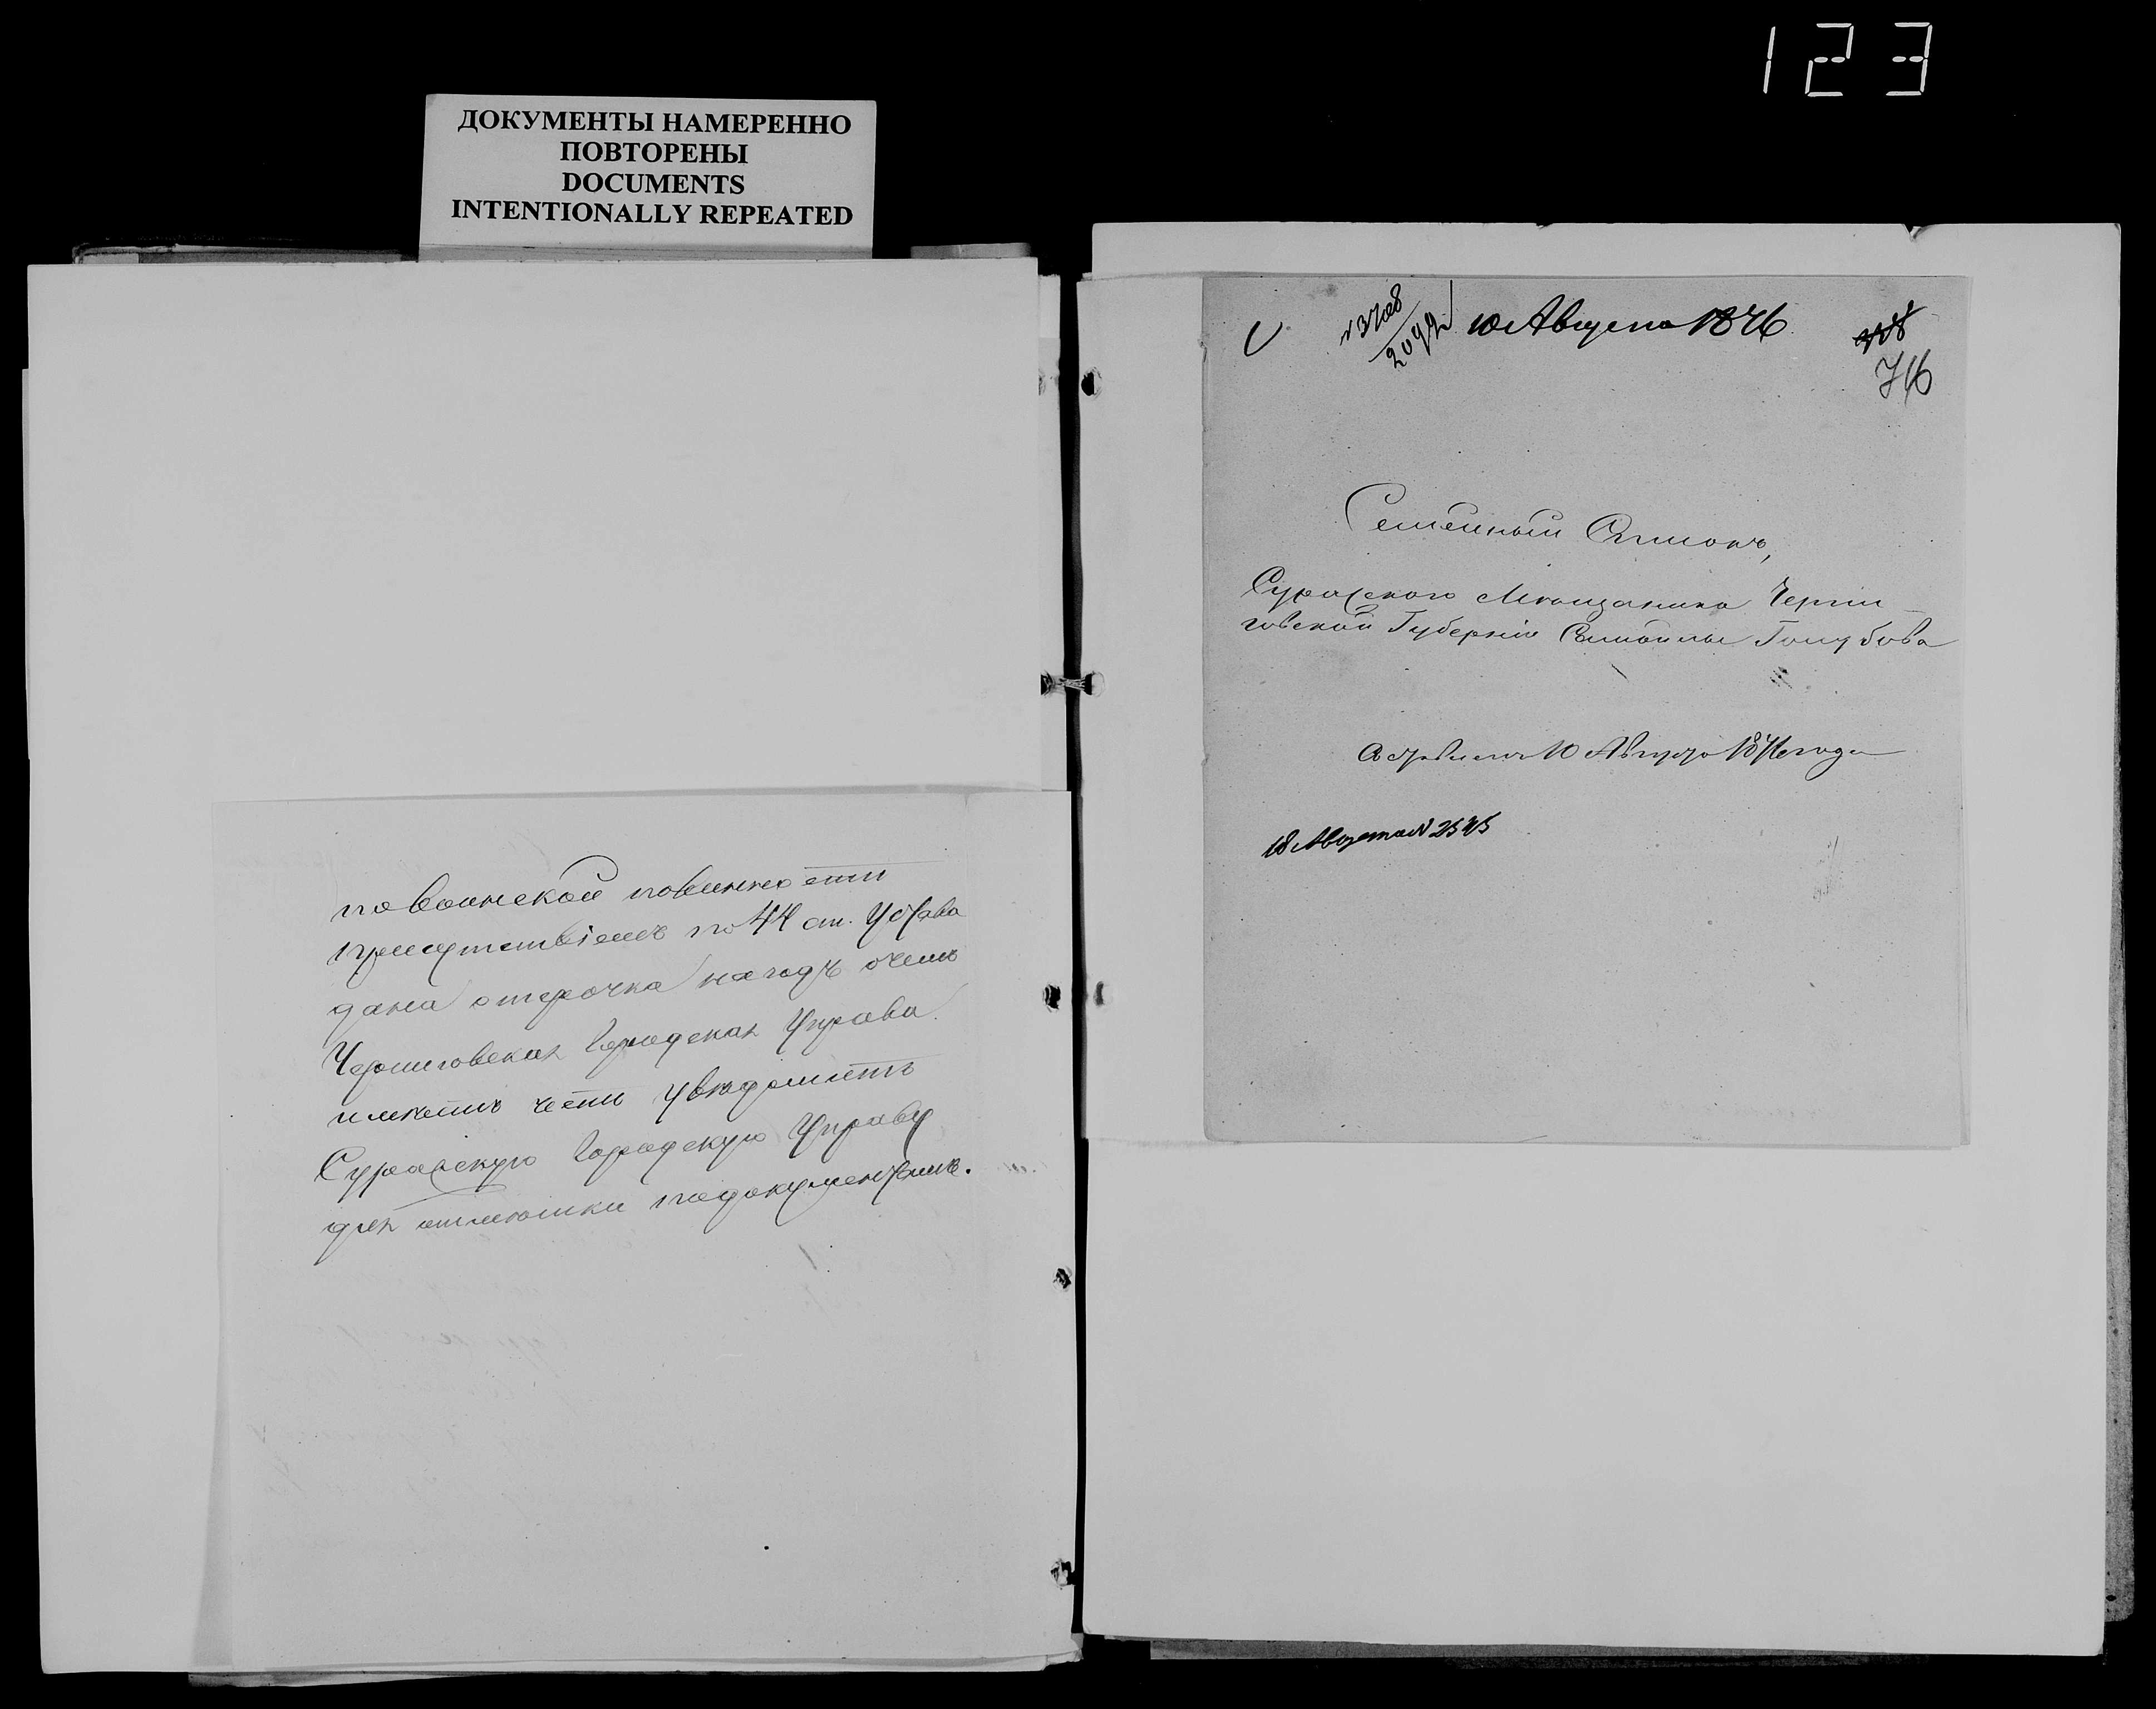 123
ДОКУМЕНТЫ НАМЕРЕННО
ПОВТОРЕНЫ
DOCUMENTS
INTENTIONALLY REPEATED
по воинской повинности
присутствiемъ по 44 ст. Устава
дана отсрочка на годъ о чемъ
Черниговская Городская Управа
имѣетъ честь увѣдомить
Суражскую Городскую Управу
для отмѣтки по документамъ.
10 Августа 1876
76
Семейный Список,
Суражского Мѣщанина Черни-
говской Губернiи Голубова
10 Августа 1876 года
18 Августа № 2545